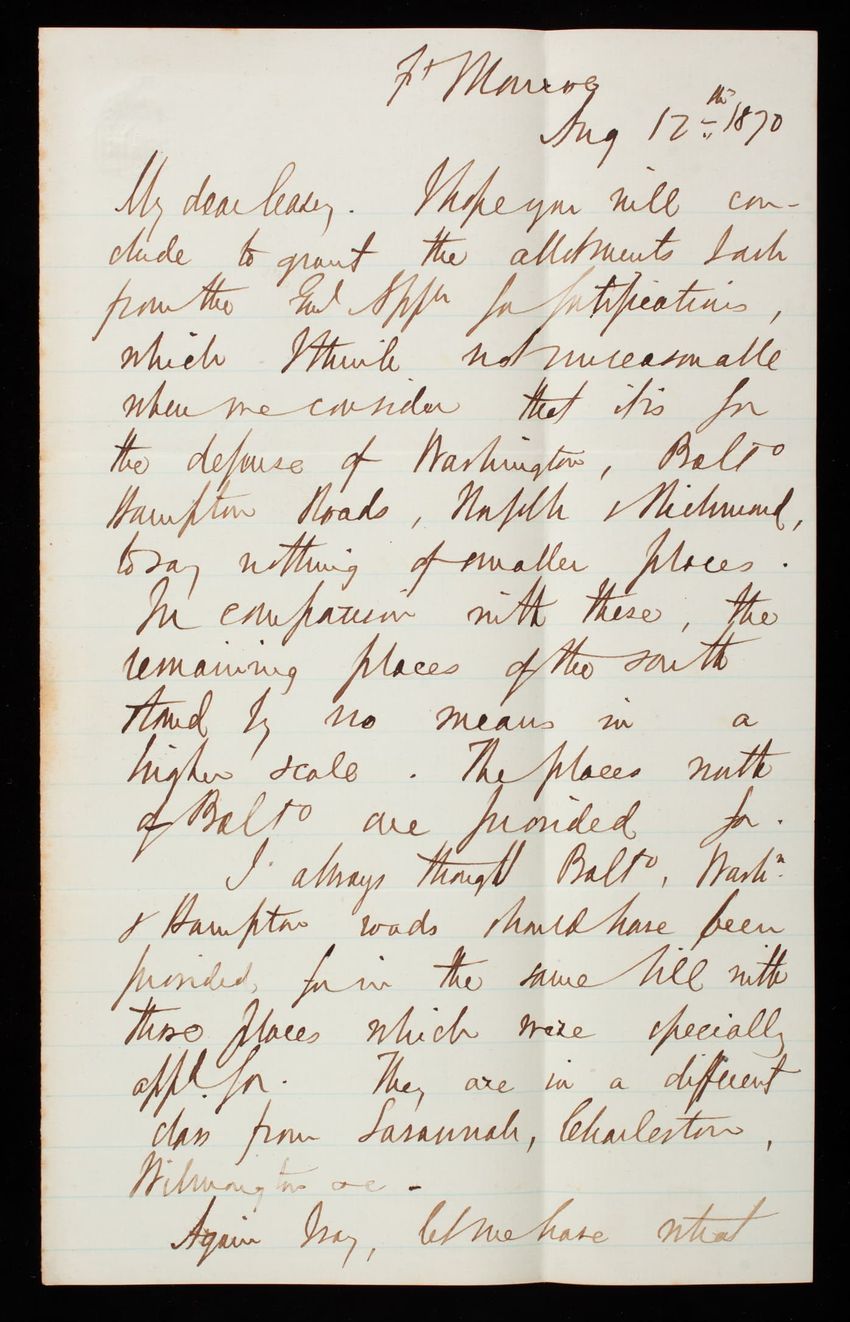 Ft Monroe
Aug 12th 1870
My dear Casey. I hope you will con-
clude to grant the allotments I ask
from the Genl Appn for fortifications,
which I think not unreasonable
when we consider that it is for
the defense of Washington, Balto
Hampton Roads, Norfolk & Richmond,
to say nothing of smaller places.
In comparison with these, the
remaining places of the south
stand by no means in a
higher scale. The places north
of Balto are provided for.
I always thought Balto, Washn.
& Hampton roads should have been
provided for in the same bill with
those places which were specially
appd. for. They are in a different
class from Savannah, Charleston,
Wilmington &c -
Again I say, let me have what